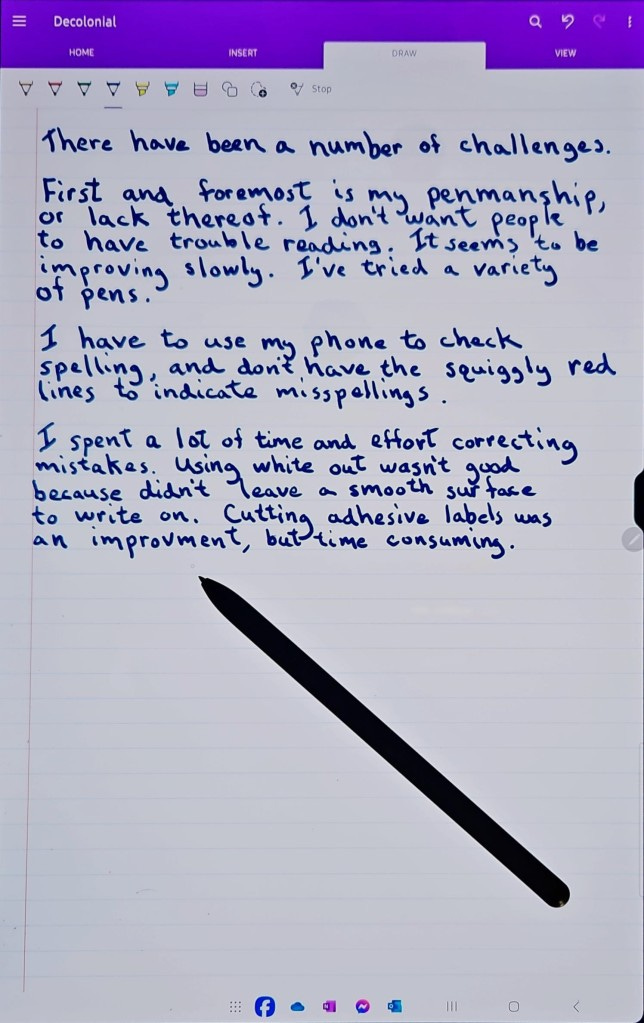 Decolonial
HOME INSERT DRAW VIEW
Stop
There have been a number of challenges.
First and foremost is my penmanship,
or lack thereof. I don't want people
to have trouble reading. It seems to be
improving slowly. I've tried a variety
of pens.
I have to use my phone to check
spelling, and don't have the squiggly red
lines to indicate misspellings.
I spent a lot of time and effort correcting
mistakes. Using white out wasn't good
because didn't leave a smooth surface
to write on. Cutting adhesive labels was
an improvment, but time consuming.